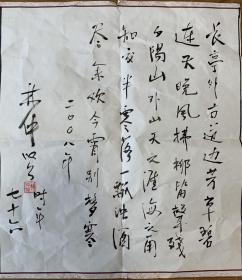 长亭外古道边芳草碧
连天晚风拂柳笛声残
夕阳山外山天之涯海之角
知交半零落一瓢浊酒
尽余欢今宵别梦寒
二00八年
亦中
时年
七十六